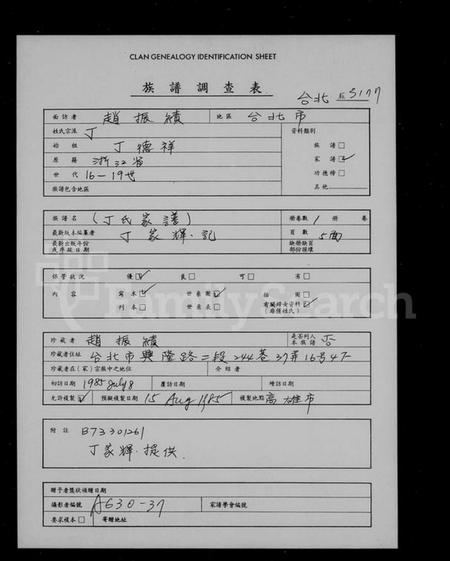 CLAN GENEALOGY IDENTIFICATION SHEET
族譜調查表
台北 5177
面訪者 趙振績 地區 台北市
姓氏宗派 丁 資料類別
始祖 丁德祥 族譜
原籍 浙江省 家譜 ✓
世代 16-19世 功德榜
族譜包含地區 其他
族譜名 (丁氏家譜) 冊卷數 1 冊 卷
最新版本編纂者 丁家輝.記 頁數 5面
最新出版年份 缺冊缺頁
或序跋日期 部份損壞
保管狀況 優 ✓ 良 可 劣
內容 寫本 ✓ 世系圖 ✓ 插圖 有關婦女資料 ✓
刊本 世系表 (非僅姓氏)
珍藏者 趙振績 是否列入本族譜 否
珍藏者住址 台北市興隆路二段244巷37弄16號4F
珍藏者在(家)宗族中之地位 介紹者
初訪日期 1985 July 8 覆訪日期 增訪日期
允許複製 ✓ 預擬複製日期 15 Aug 1985 ✓ 複製地點 高雄市
附註 B73301261
丁家輝.提供.
贈予者獎狀領贈日期
攝影者編號 A630-37 家譜學會編號
要求樣本 寄贈地址
FamilySearch